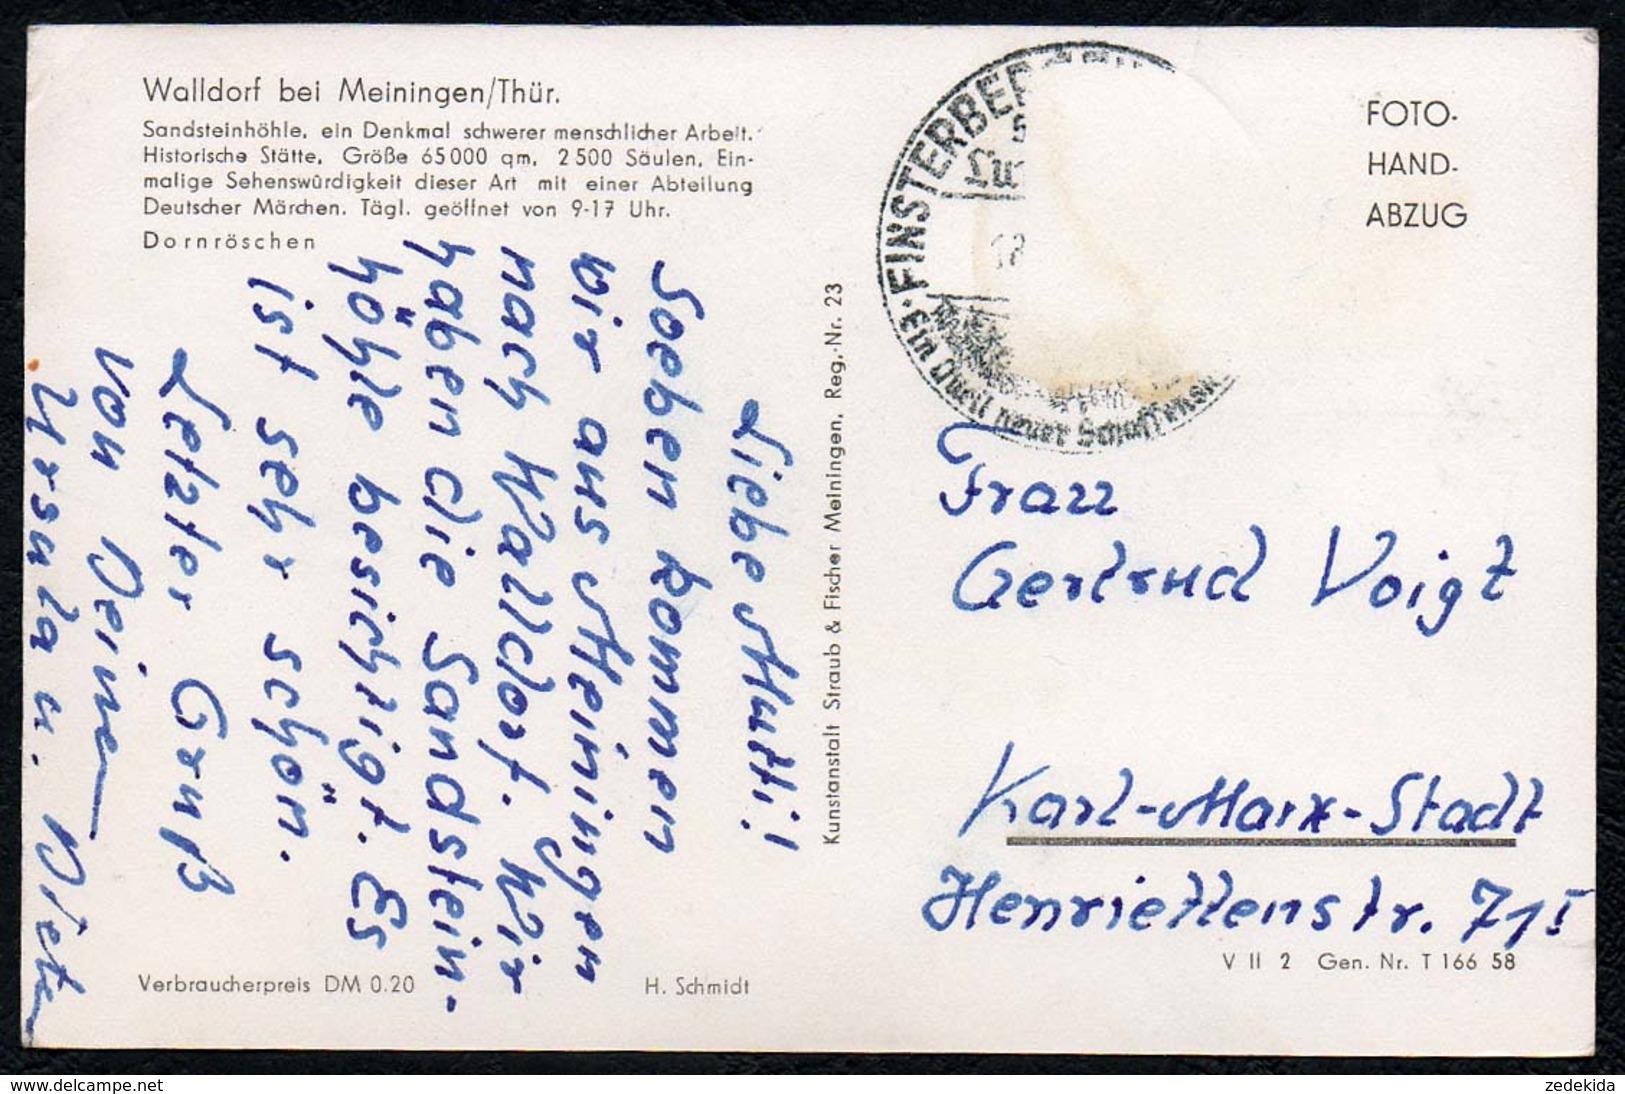 Walldorf bei Meiningen/Thür.
Sandsteinhöhle, ein Denkmal schwerer menschlicher Arbeit.
Historische Stätte, Größe 65000 qm, 2500 Säulen, Ein-
malige Sehenswürdigkeit dieser Art mit einer Abteilung
Deutscher Märchen. Tägl. geöffnet von 9-17 Uhr.
Dornröschen
Liebe Mutti!
Soeben kommen
wir aus Meiningen
nach Walldorf. Wir
haben die Sandstein-
höhle besichtigt. Es
ist sehr schön.
Letzter Gruß
von Deiner
Ursula u. Dieter
Verbraucherpreis DM 0.20
H. Schmidt
Kunstanstalt Straub & Fischer Meiningen, Reg.-Nr. 23
FINSTERBER
Ein Quell neuer Schaffens
18
FOTO-
HAND-
ABZUG
Frau
Gertrud Voigt
Karl-Marx-Stadt
Henriettenstr. 71 I
V II 2 Gen. Nr. T 166 58
www.delcampe.net
zedekida